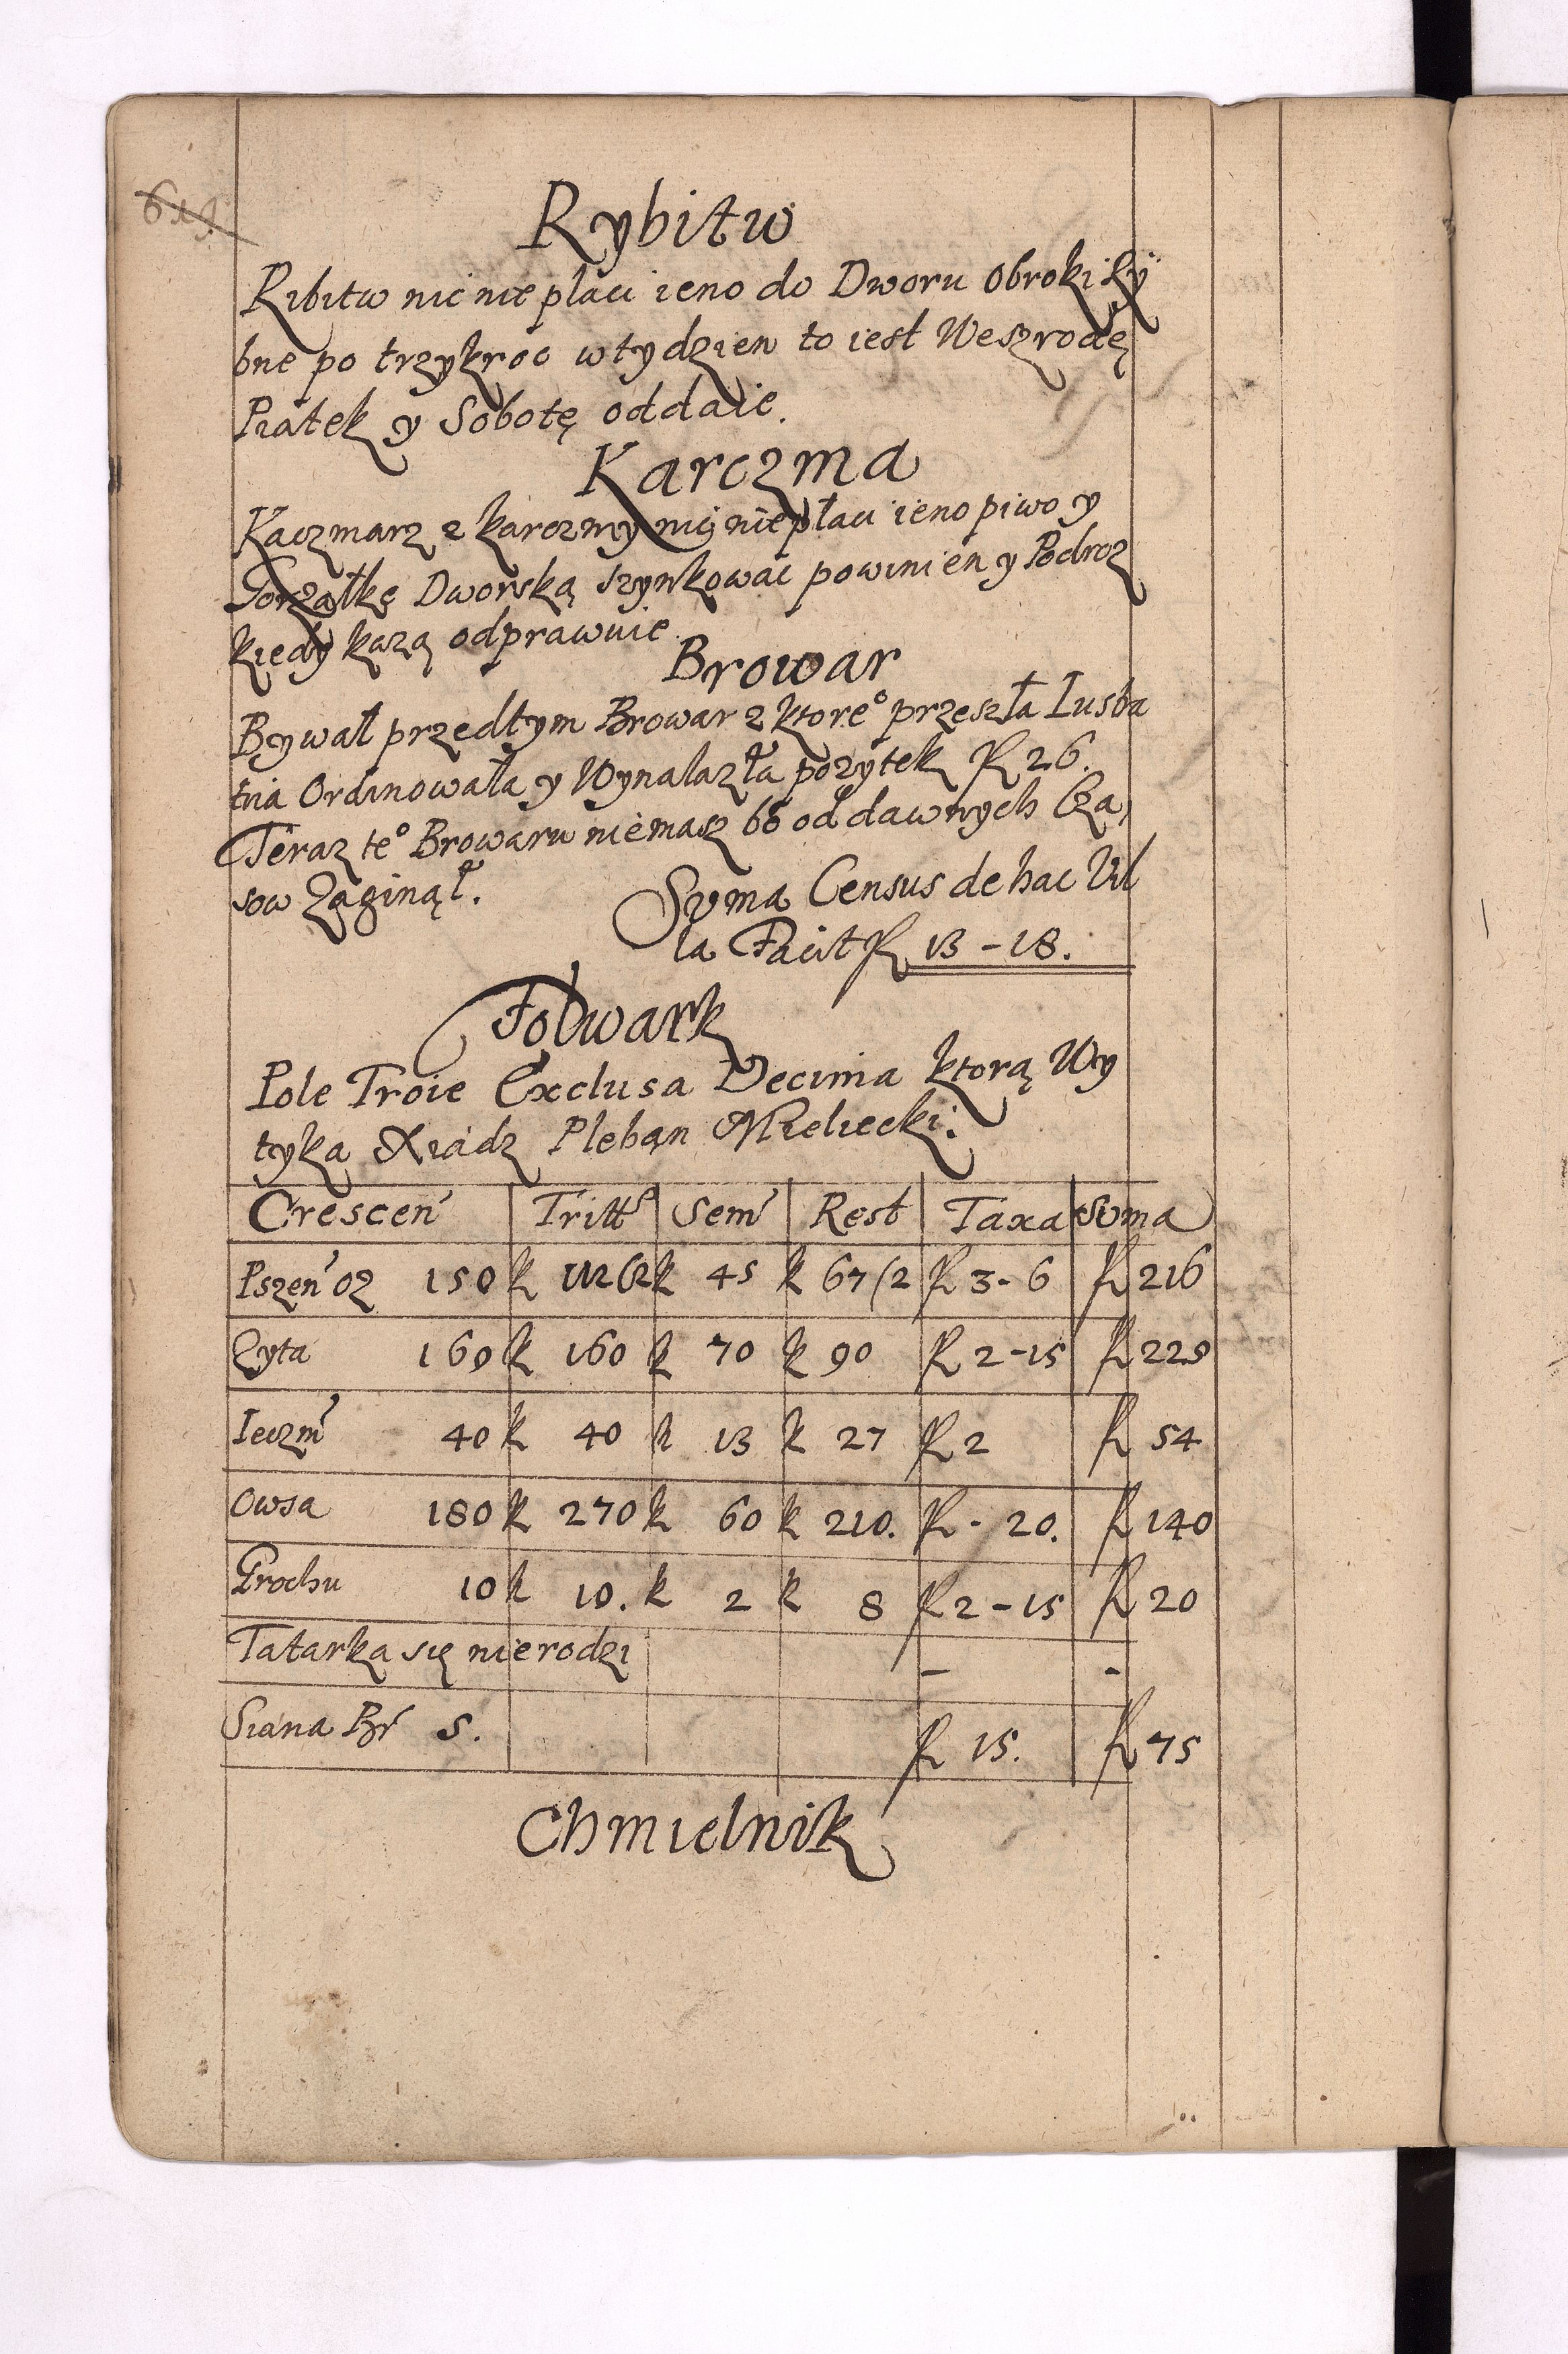 Rybitw
Ribitw nic nie płaci ieno do Dworu Obroki Ry
bne po trzykroc w tydzien to iest We szrodę
Piątek y Sobotę oddaie.
Karczma
Kaczmarz z karczmy nic nie płaci ieno piwo y
Gorzałkę Dworską szynkowac powinien y Podroz
kiedy kazą odprawuie.
Browar
Bywał przedtym Browar z ktore° przeszła Lustra
tia Ordinowała y Wynalazła pozytek fl 26.
Teraz te° Browaru niemasz bo od dawnych Cza
sow Zaginął.
Suma Census de hac Vil
la Facit fl 13 - 18.
Folwark
Pole Troie Exclusa Decima ktorą Wy
tyka Xiądz Pleban Mielecki.
Crescen Tritt Sem Rest Taxa Suma
Pszen oz 150 k 112(2 k 45 k 67(2 fl 3 - 6 fl 216
Zyta 160 k 160 k 70 k 90 fl 2 - 15 fl 225
Ieczm 40 k 40 k 13 k 27 fl 2 fl 54
Owsa 180 k 270 k 60 k 210. fl - 20. fl 140
Grochu 10 k 10. k 2 k 8 fl 2 - 15 fl 20
Tatarka się nie rodzi - -
Siana Br 5. fl 15. fl 75
Chmielnik